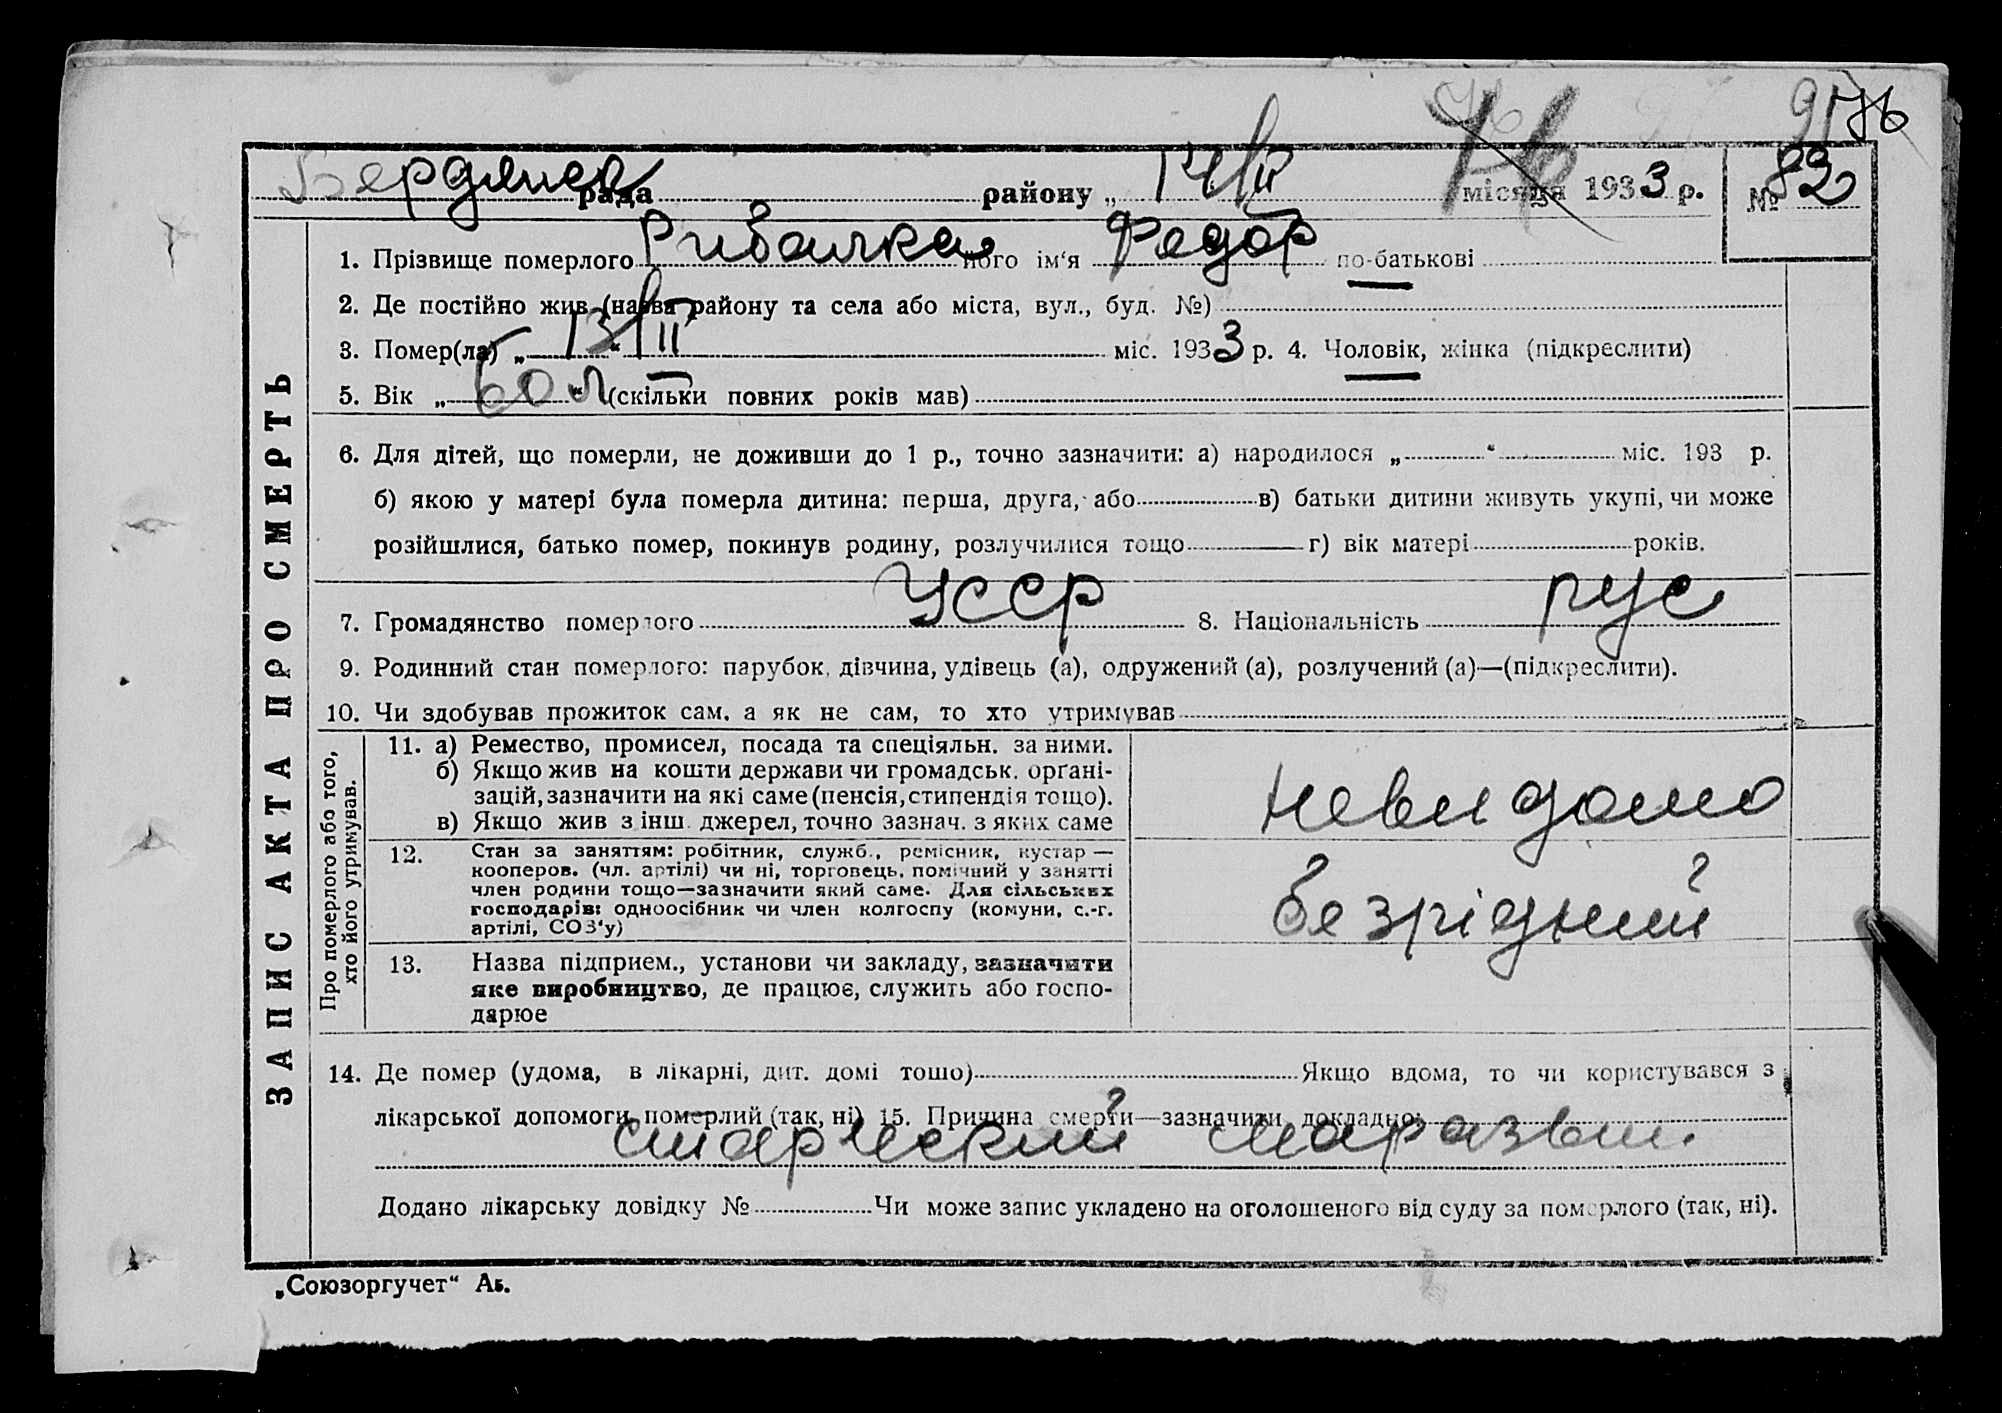 91 76
Бердянск рада району „ 14/VII місяця 1933 р. № 82
ЗАПИС АКТА ПРО СМЕРТЬ
1. Прізвище померлого Рибалка його ім‘я Федор по-батькові
2. Де постійно жив (назва району та села або міста, вул., буд. №)
3. Помер(ла) „ 13/VII “ міс. 1933 р. 4. Чоловік, жінка (підкреслити)
5. Вік „ 60 л “ (скільки повних років мав)
6. Для дітей, що померли, не доживши до 1 р., точно зазначити: а) народилося „ “ міс. 193 р.
б) якою у матері була померла дитина: перша, друга, або в) батьки дитини живуть укупі, чи може
розійшлися, батько помер, покинув родину, розлучилися тощо г) вік матері років.
7. Громадянство померлого УССР 8. Національність рус
9. Родинний стан померлого: парубок, дівчина, удівець (а), одружений (а), розлучений (а)—(підкреслити).
10. Чи здобував прожиток сам, а як не сам, то хто утримував
Про померлого або того,
хто його утримував.
11. а) Ремество, промисел, посада та спеціяльн. за ними.
б) Якщо жив на кошти держави чи громадськ. орґані-
зацій, зазначити на які саме (пенсія, стипендія тощо).
в) Якщо жив з інш. джерел, точно зазнач. з яких саме
невидомо
12. Стан за заняттям: робітник, служб., ремісник, кустар —
кооперов. (чл. артілі) чи ні, торговець, помічний у занятті
член родини тощо—зазначити який саме. Для сільських
господарів: одноосібник чи член колгоспу (комуни, с.-г.
артілі, СОЗ‘у)
безрідний
13. Назва підприєм., установи чи закладу, зазначити
яке виробництво, де працює, служить або госпо-
дарює
14. Де помер (удома, в лікарні, дит. домі тощо) Якщо вдома, то чи користувався з
лікарської допомоги померлий (так, ні) 15. Причина смерти—зазначити докладно:
старческий маразм.
Додано лікарську довідку № Чи може запис укладено на оголошеного від суду за померлого (так, ні).
„Союзоргучет“ Аз.